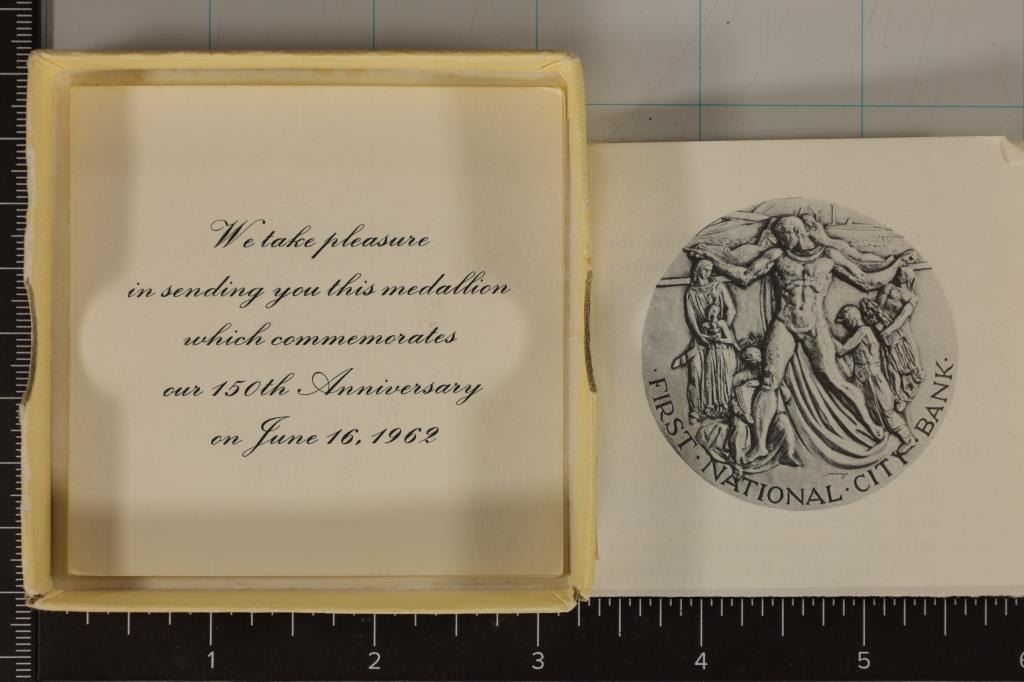 We take pleasure
in sending you this medallion
which commemorates
our 150th Anniversary
on June 16, 1962
· FIRST · NATIONAL · CITY · BANK ·
1 2 3 4 5 6